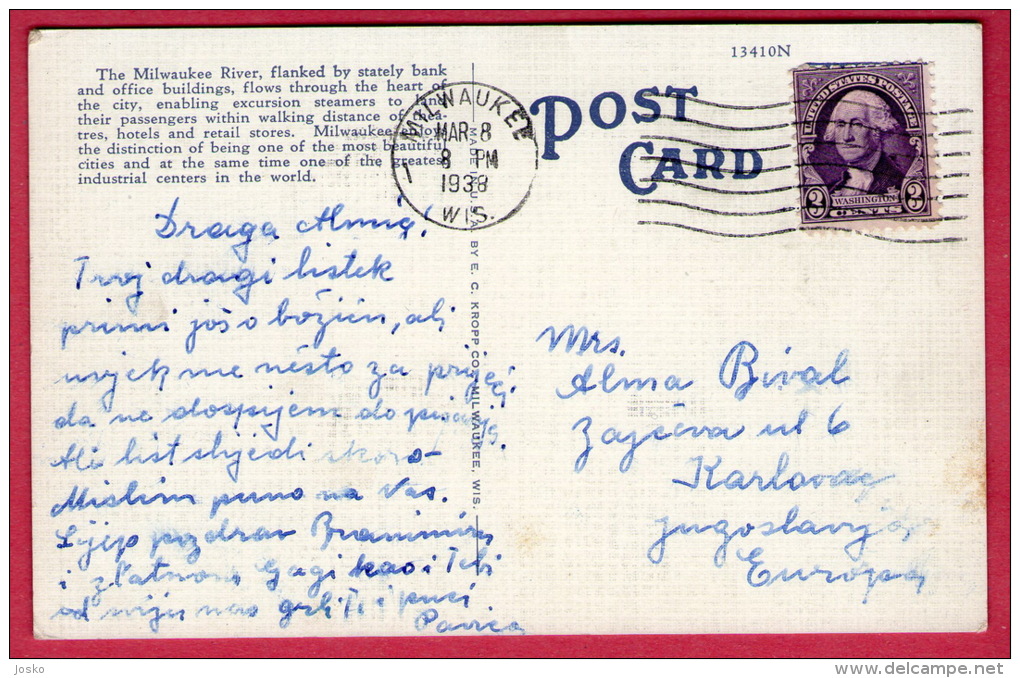 13410N
The Milwaukee River, flanked by stately bank
and office buildings, flows through the heart of
the city, enabling excursion steamers to land
their passengers within walking distance of thea-
tres, hotels and retail stores. Milwaukee enjoys
the distinction of being one of the most beautiful
cities and at the same time one of the greatest
industrial centers in the world.
MILWAUKEE
MAR-8
8 PM
1938
WIS.
POST
CARD
UNITED STATES POSTAGE
WASHINGTON
3 CENTS 3
MADE IN U.S.A. BY E. C. KROPP CO., MILWAUKEE, WIS.
Draga Almia!
Tvoj dragi listek
primi još o božiću, ali
uvjek me nešto za priječi
da ne dospijem do pisanja.
Ali list slijedi skoro-
Mislim puno na Vas.
Lijep pozdrav Branimiru
i zlatnom Gagi kao i Tebi
od sviju nas grli Te i ljubi
Pavica
Mrs.
Alma Bival
Zajčeva ul 6
Karlovac
Jugoslavija
Europa
Josko
delcampe.net